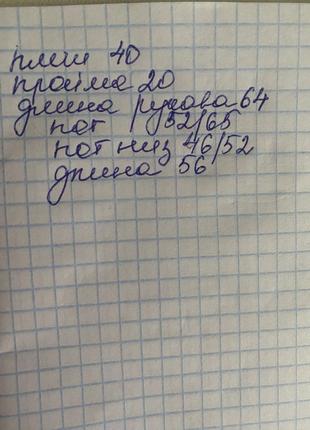 плеи 40
пройма 20
длина рукава 64
пот 52/65
пот низ 46/52
длина 56